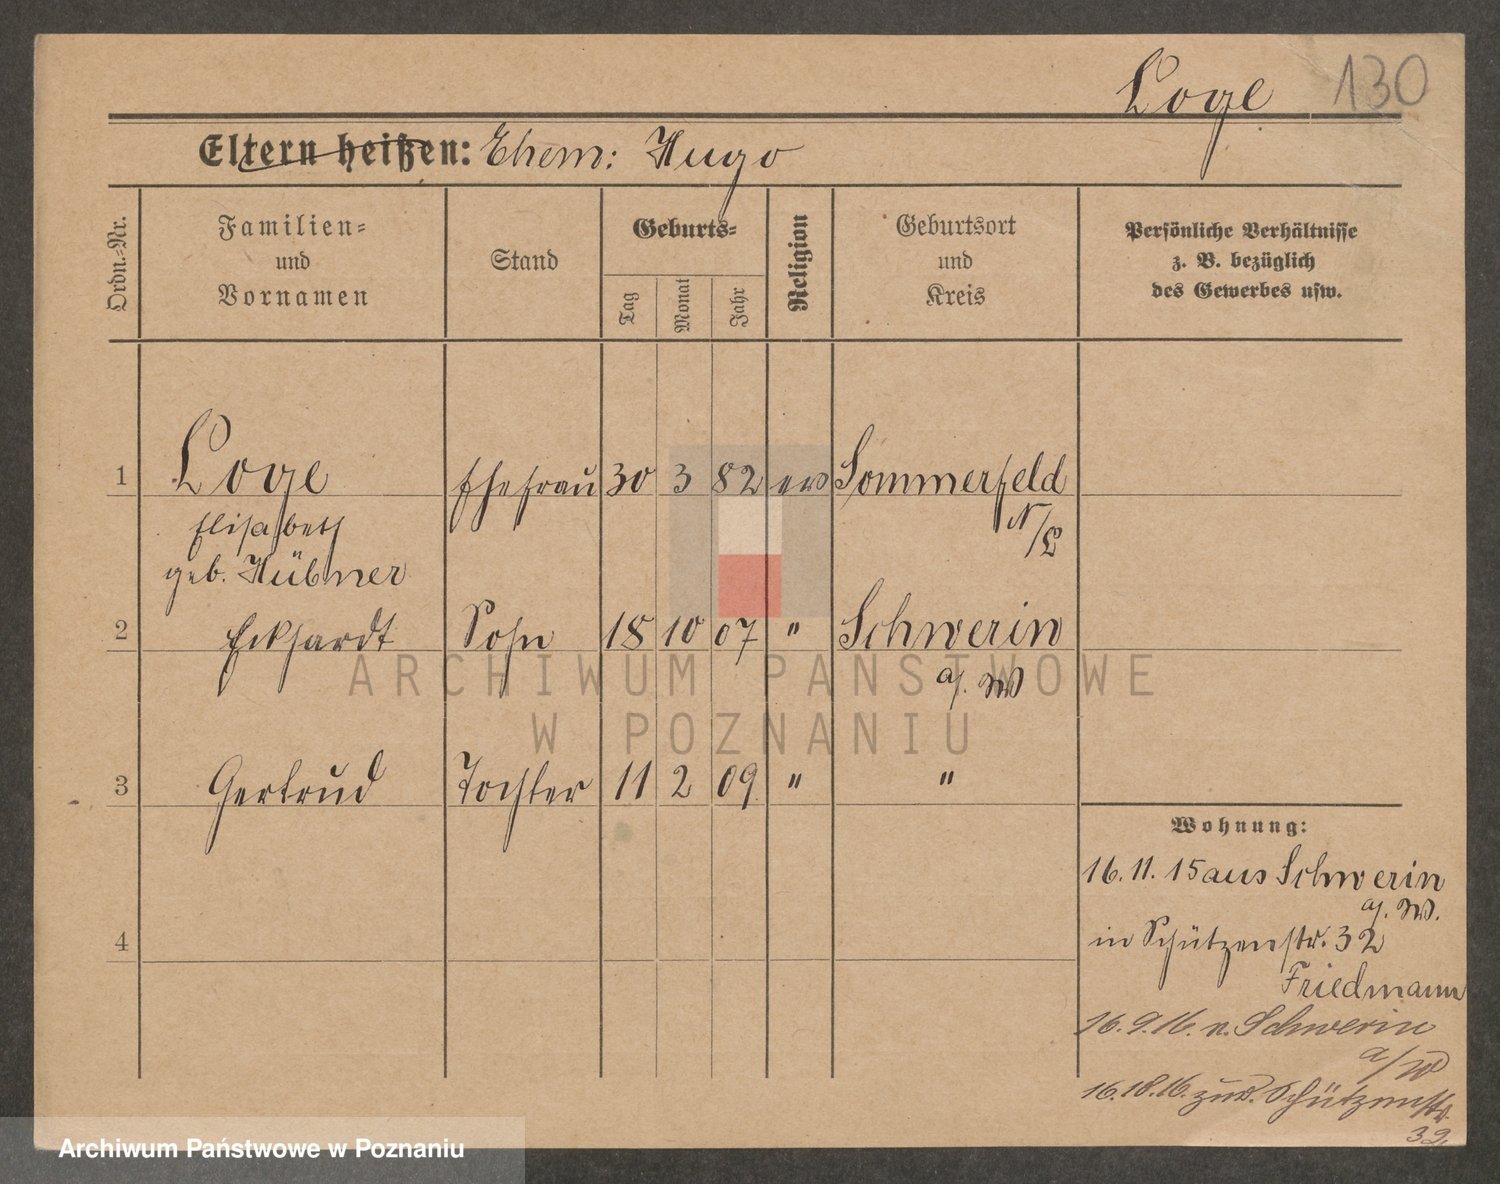 Loge 130
Eltern heißen: Ehem: Hugo
Ordn.-Nr.
Familien-
und
Vornamen
Stand
Geburts-
Tag
Monat
Jahr
Religion
Geburtsort
und
Kreis
Persönliche Verhältnisse
z. B. bezüglich
des Gewerbes usw.
1 Loge Ehefrau 30 3 82 ev Sommerfeld
N/L
Elisabeth
geb. Hübner
2 Eckhardt Sohn 18 10 07 " Schwerin
a/. W
3 Gertrud Tochter 11 2 09 " "
4
Wohnung:
16. 11. 15 aus Schwerin
a/. W.
in Schützenstr. 32
Friedmann
16. 9. 16. n. Schwerin
a/W
16. 10. 16. zur. Schützenstr.
32.
ARCHIWUM PAŃSTWOWE
W POZNANIU
Archiwum Państwowe w Poznaniu